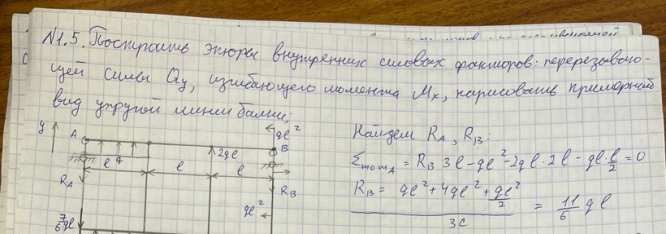 N1.5. Построить эпюры внутренних силовых факторов: перерезываю-
щей силы Qy, изгибающего момента Mx, нарисовать примерный
вид упругой линии балки;
y A q 2ql B ql²
l l l
RA RB
ql²
7/6 ql
Найдем RA, RB:
Σmom A = RB 3l - ql² - 2ql · 2l - ql · l/2 = 0
RB = (ql² + 4ql² + ql²/2) / 3l = 11/6 ql